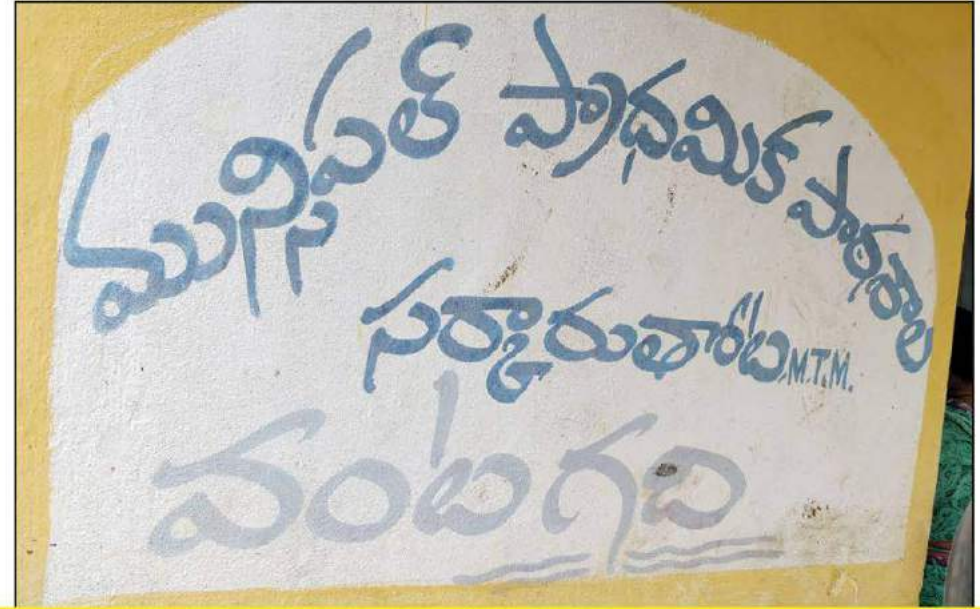 మున్సిపల్ ప్రాథమిక పాఠశాల
సర్కారుతోట M.T.M.
వంటగది